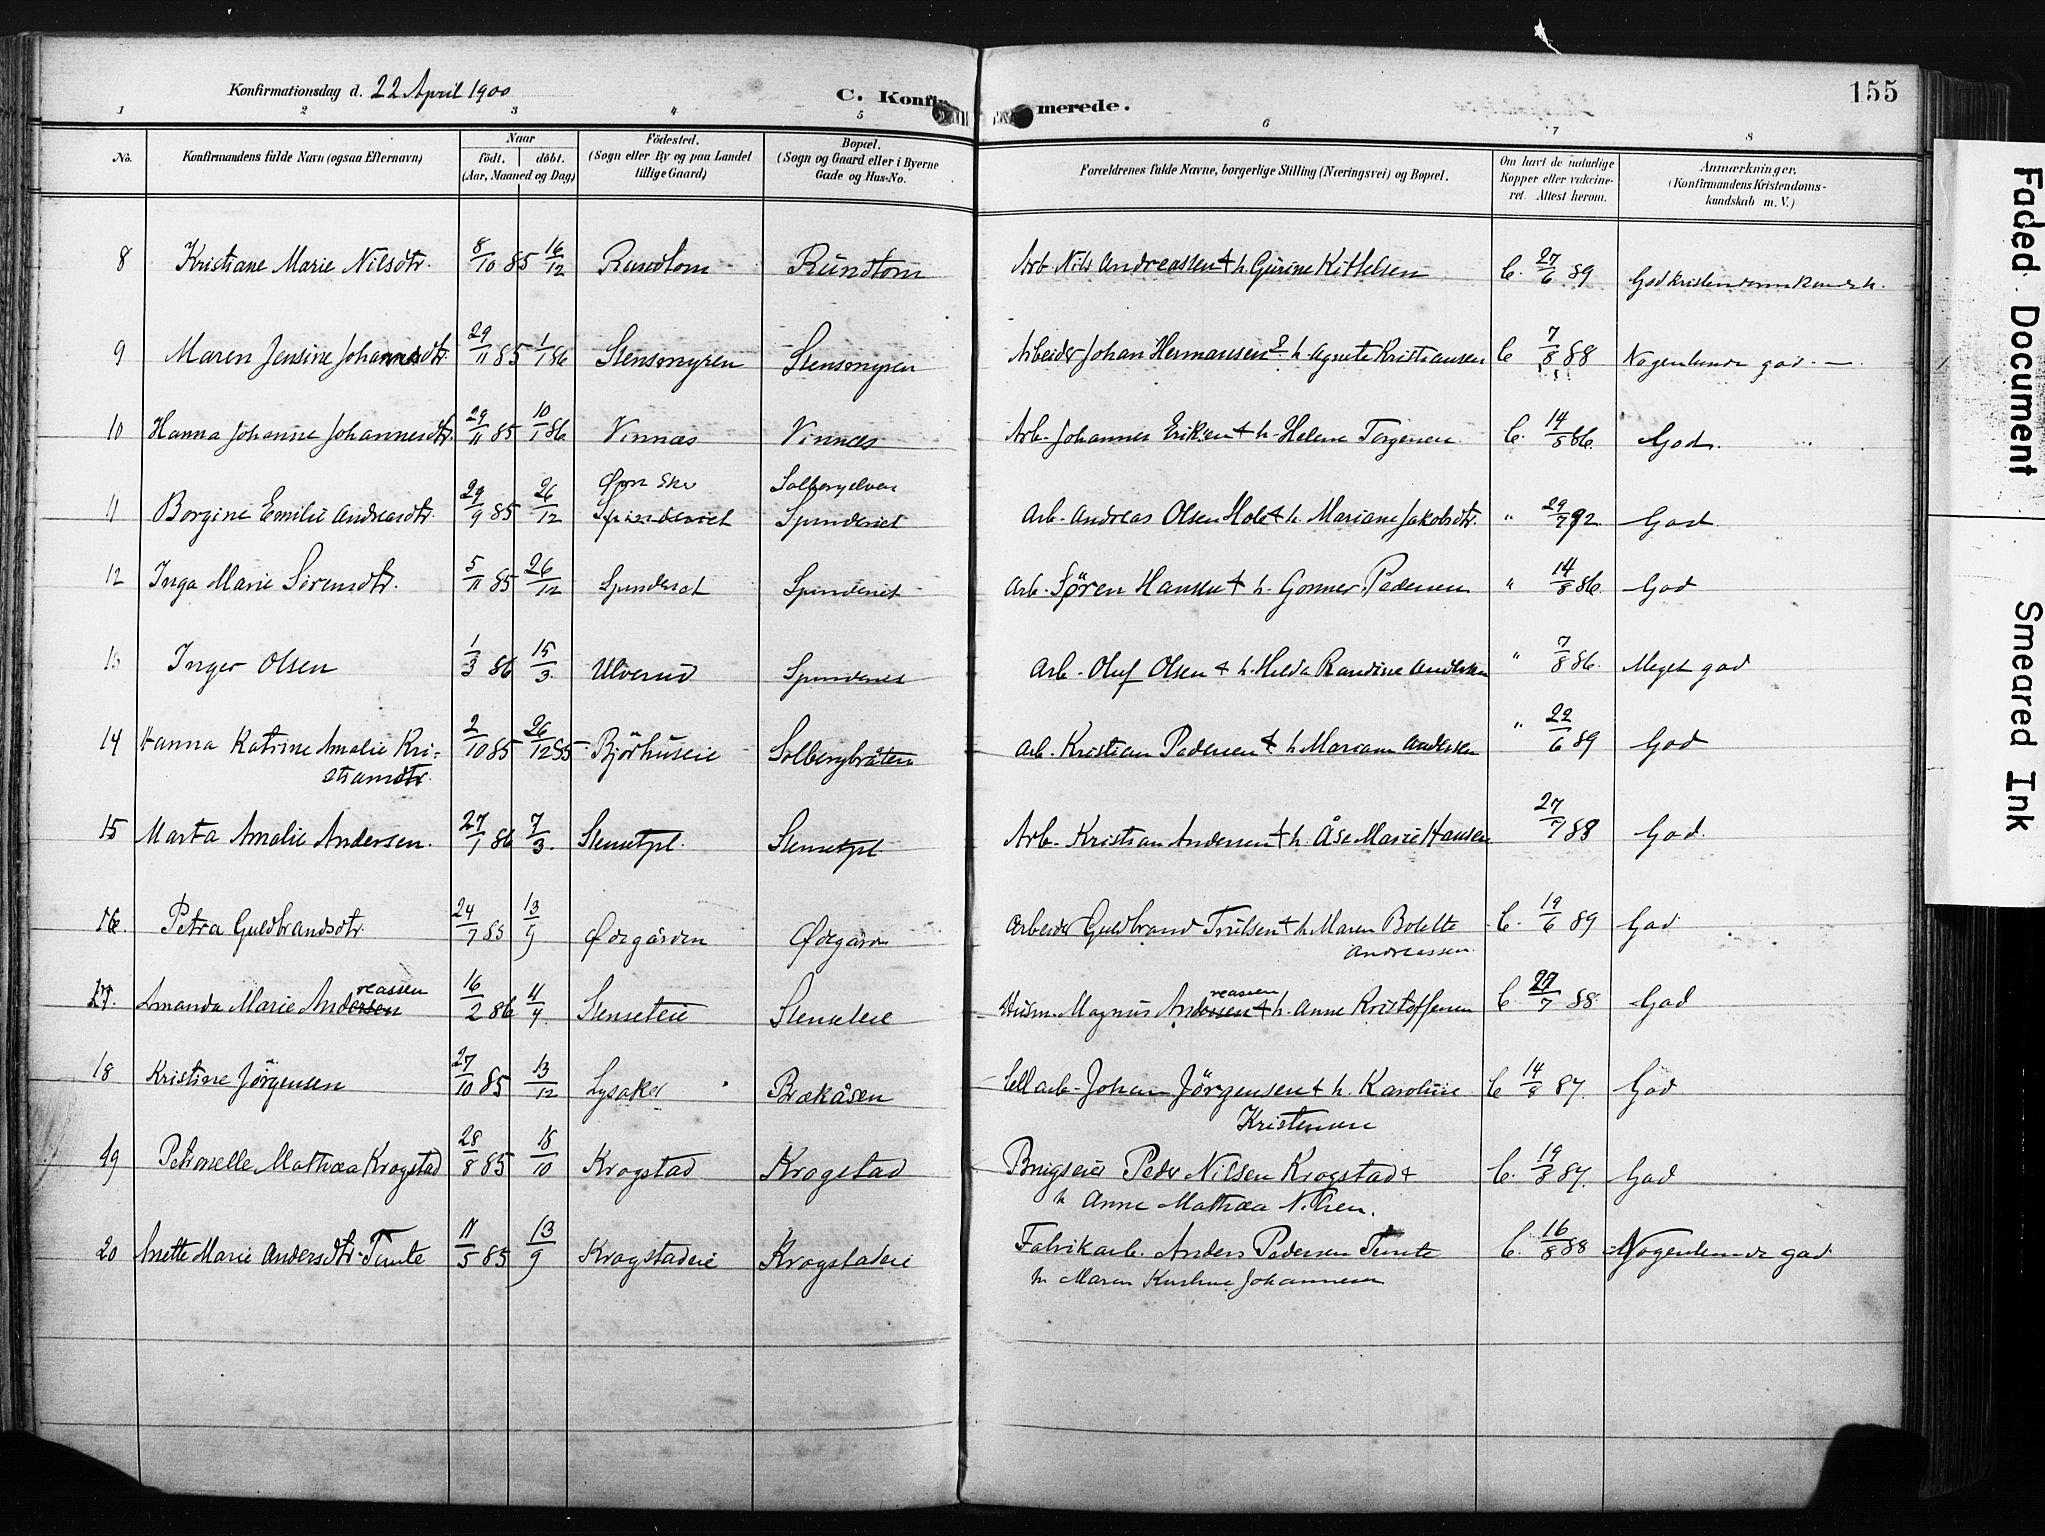 Konfirmationsdag d. 22 April 1900
C. Konfirmerede.
155
1 2 3 4 5 6 7 8
No. Konfirmandens fulde Navn (ogsaa Efternavn) Naar födt. döbt. (Aar, Maaned og Dag) Födested. (Sogn eller By og paa Landet tillige Gaard) Bopæl. (Sogn og Gaard eller i Byerne Gade og Hus-No. Forældrenes fulde Navne, borgerlige Stilling (Næringsvei) og Bopæl. Om havt de naturlige Kopper eller vakcineret. Attest herom. Anmærkninger. (Konfirmandens Kristendomskundskab m. V.)
8 Kristiane Marie Nilsdtr. 8/10 85 16/12 Rundtom Rundtom Arb. Nils Andreassen + h. Gurine Kittelsen C. 27/6 89 God kristendomskundsk.
9 Maren Jensine Johannesdtr. 29/11 85 1/1 86 Stensmyren Stensmyren Arbeider Johan Hermansen & h. Agnete Kristiansen C 7/8 88 Nogenlunde god —
10 Hanna Johanne Johannesdtr. 29/11 85 10/1 86 Vinnæs Vinnæs Arb. Johannes Eriksen + h. Helene Torgersen C. 14/8 86. God.
Øvre Eker Solbergelven
11 Borgine Emilie Andreasdtr. 29/9 85 26/12 Spinderiet Spinderiet Arb. Andreas Olsen Hole + h. Mariane Jakobsdtr. " 29/7 92 God
12 Inga Marie Sørensdtr. 5/11 85 26/12 Spinderiet Spinderiet Arb. Søren Hansen + h. Gonner. Pedersen " 14/8 86. God
13 Inger Olsen 1/3 86 15/3. Ulverud Spinderiet Arb. Oluf Olsen + h. Hilda Randine Andersen " 7/8 86. Meget god
14 Hanna Katrine Amalie Kri- 2/10 85 26/12 85 Björhuseie Solbergbråten Arb. Kristian Pedersen + h. Mariane Andersen " 22/6 89 God
stiansdtr.
15 Marta Amalie Andersen. 27/1 86 7/3. Stensetpl. Stensetpl. Arb. Kristian Andersen + h. Åse Marie Hansen 27/7 88 God.
16. Petra Guldbrandsdtr. 24/7 85 13/9 Ødegården Ødegårdn Arbeider Guldbrand Trulsen + h. Maren Bolette C. 19/6 89 God
Andreassen
17. Amanda Marie Andersen reassen 16/2 86 11/4. Stenseteie Stenseteie Husm. Magnus Andersen reassen + h. Anne Kristoffersen C 27/7 88. God
18 Kristine Jörgensen 27/10 85 13/12 Lysaker Brekåsen Cellarb. Johan Jörgensen + h. Karoline C 14/8 87. God
Kristensen
19 Petronelle Mathea Krogstad 28/8 85 18/10 Krogstad Krogstad Brugseier Peder Nilsen Krogstad + C. 19/8 87. God
h. Anne Mathea Nilsen.
20 Anette Marie Andersdtr. Tømte 11/5 85 13/9 Krogstadeie Krogstadeie Fabrikarb. Anders Pedersen Tømte C. 16/8 88 Nogenlunde god
h. Maren Kirstine Johannesen
Faded Document Smeared Ink